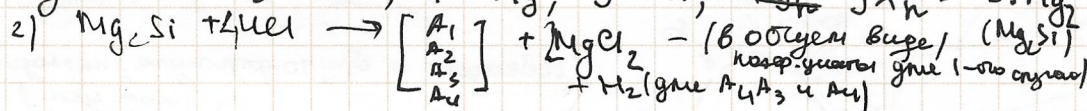 2) Mg₂Si + 4HCl → [A₁ A₂ A₃ A₄] + 2MgCl₂ - (в общем виде) (Mg₂Si)
коэф-циенты для 1-ого случая)
+ H₂ (для A₄ A₃ и A₄)